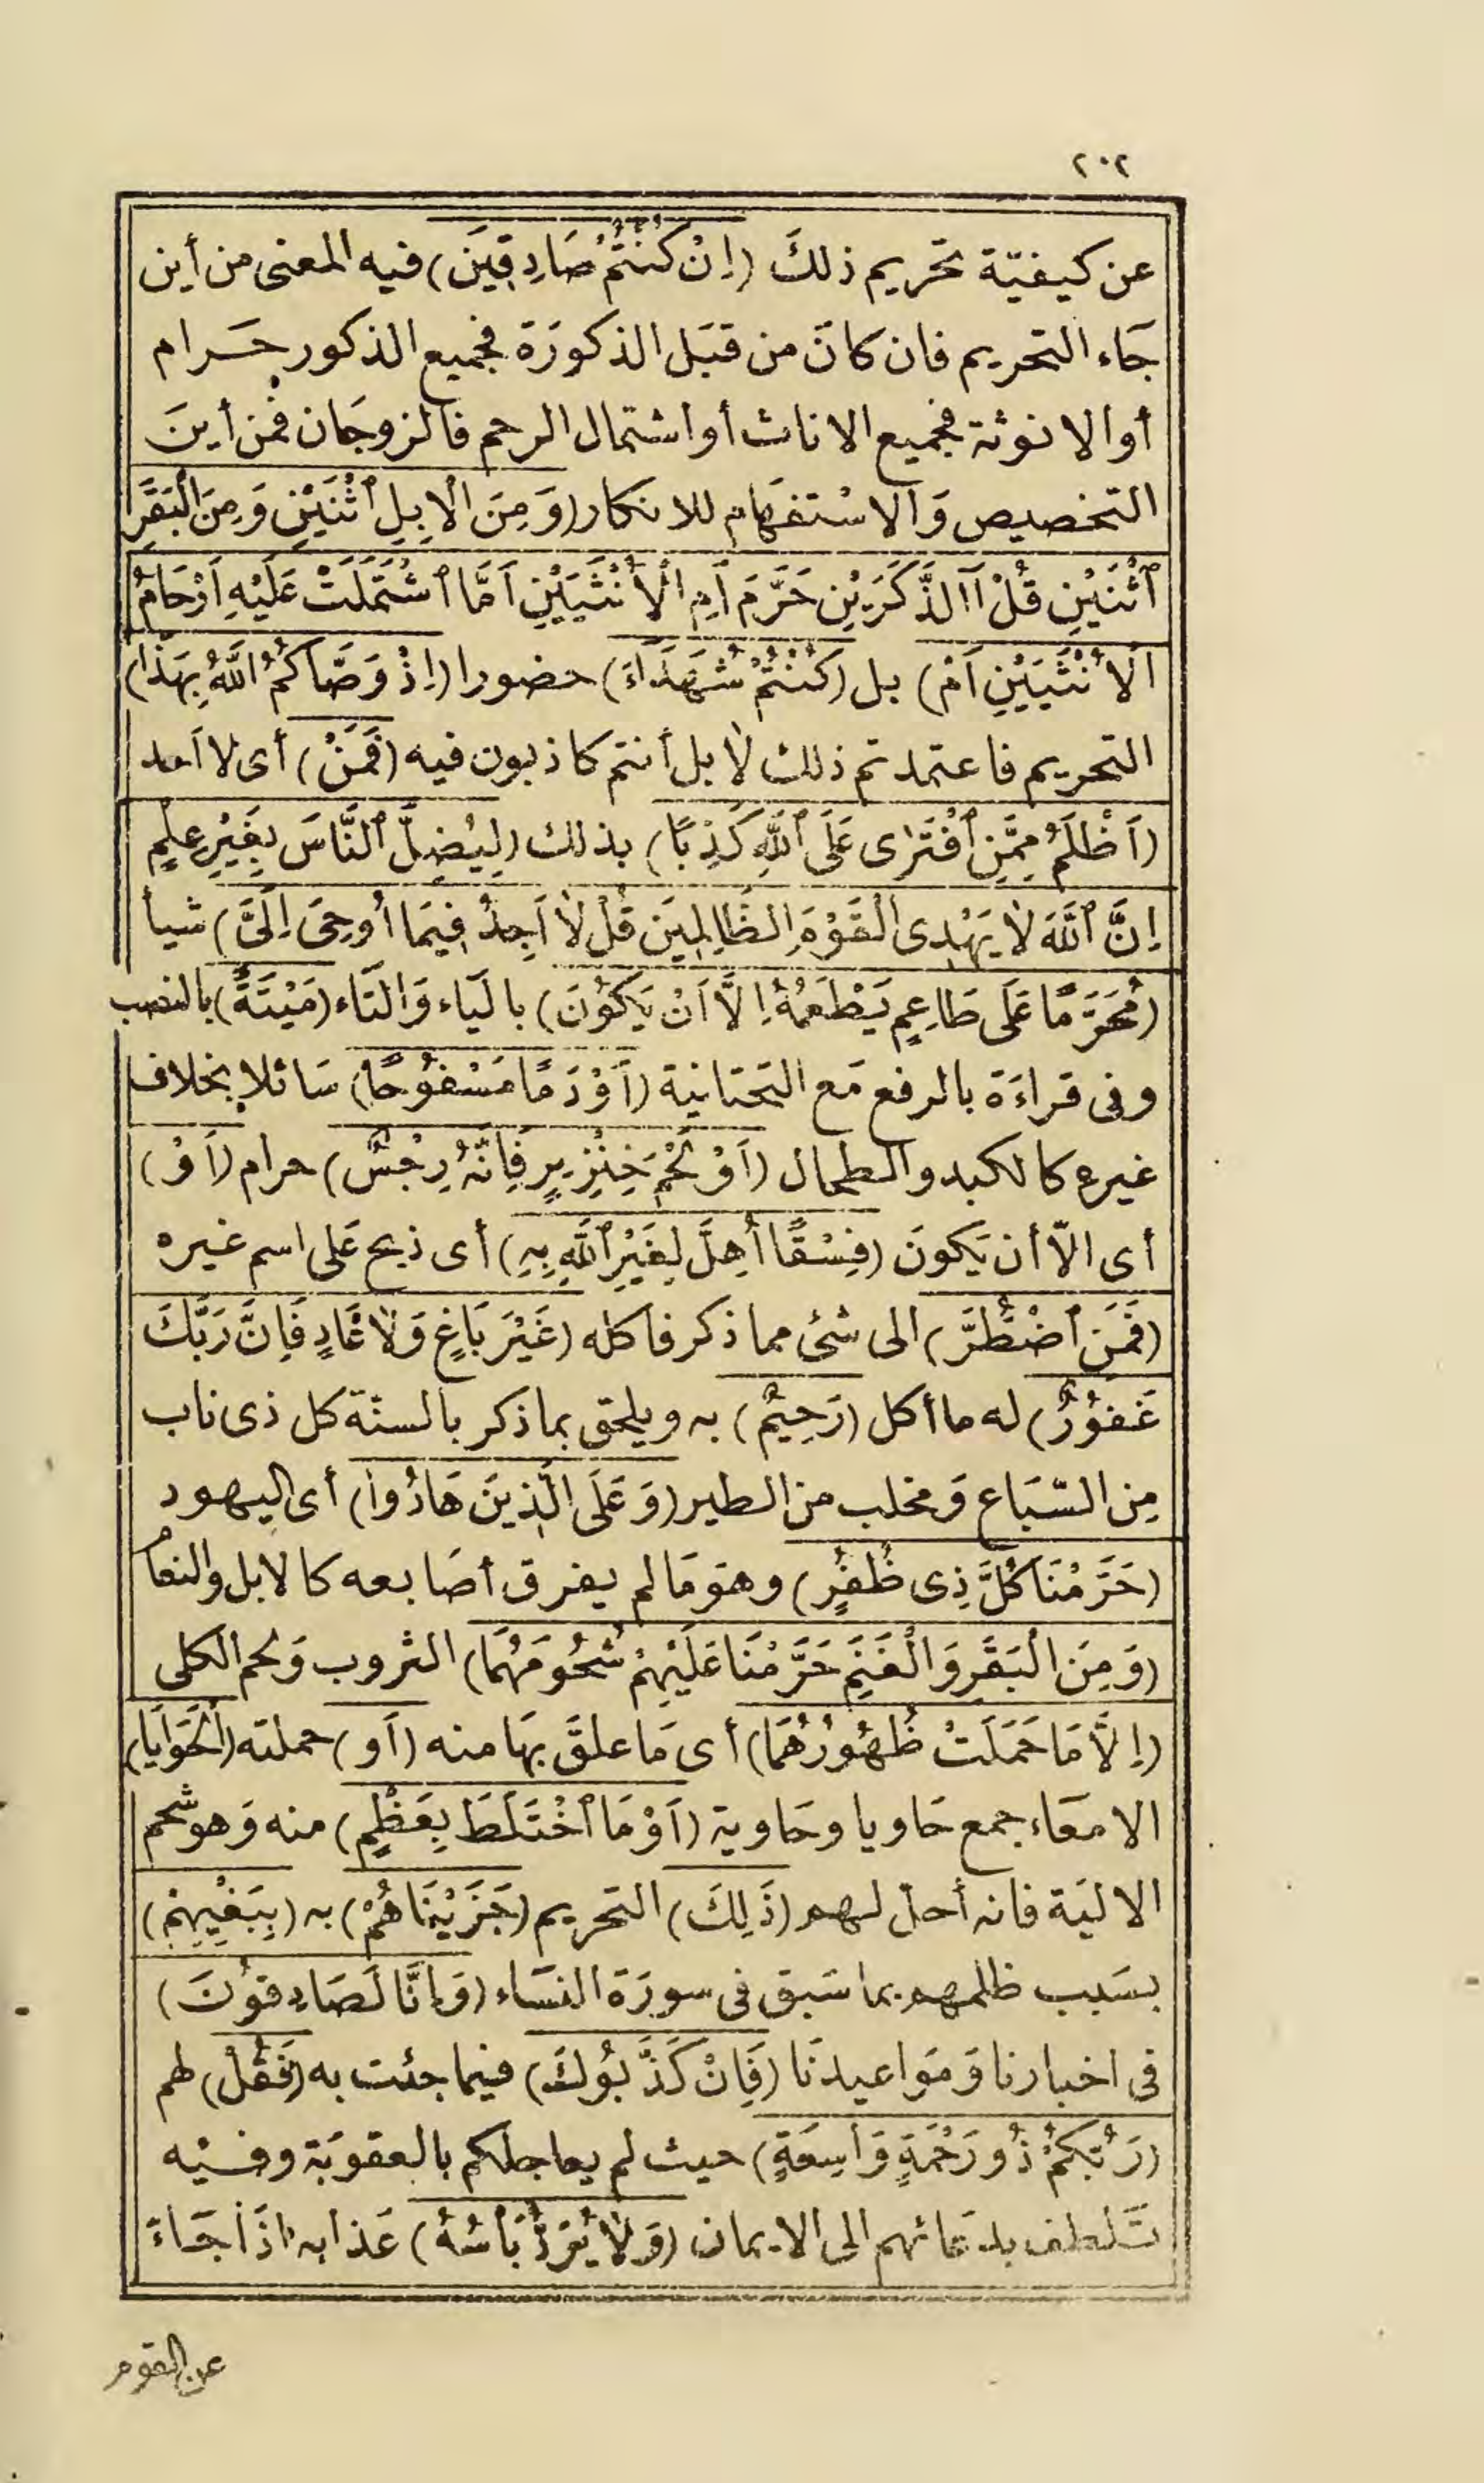 ٢٠٢
عن كيفيّة تحريم ذلكَ (اِنْ كُنْتُمْ صَادِقِينَ) فيه المعنى من أين
جَاء التحريم فان كانَ من قبَل الذكورَة فجميع الذكور حَرام
أو الانوثة فجميع الاناث أو اشتمال الرحم فالزوجَان فمن أينَ
التخصيص وَالاسْتفهَام للانكار (وَمِنَ الْاِبِلِ ٱثْنَيْنِ وَمِنَ الْبَقَرِ
ٱثْنَيْنِ قُلْ آٰلذَّكَرَيْنِ حَرَّمَ أَمِ الْأُنْثَيَيْنِ اَمَّا ٱشْتَمَلَتْ عَلَيْهِ اَرْحَامُ
الْأُنْثَيَيْنِ اَمْ) بل (كُنْتُمْ شُهَدَاءَ) حضورا (اِذْ وَصَّاكُمُ اللّٰهُ بِهَذَا)
التحريم فاعتمدتم ذلك لا بل أنتم كاذبون فيه (فَمَنْ) أى لا اَحد
(اَظْلَمُ مِمَّنِ ٱفْتَرٰى عَلَى ٱللّٰهِ كَذِبًا) بذلك (لِيُضِلَّ ٱلنَّاسَ بِغَيْرِ عِلْمٍ
اِنَّ ٱللّٰهَ لَا يَهْدِى الْقَوْمَ الظَّالِمِينَ قُلْ لَا اَجِدُ فِيمَا أُوحِىَ اِلَىَّ) شيأ
(مُحَرَّمًا عَلَى طَاعِمٍ يَطْعَمُهُ اِلَّا اَنْ يَكُونَ) باليَاء وَالتَاء (مَيْتَةً) بالنصب
وفى قراءَة بالرفع مَع التحتانية (اَوْ دَمًا مَسْفُوحًا) سَائلا بخلاف
غيره كالكبد والطحال (اَوْ لَحْمَ خِنْزِيرٍ فَاِنَّهُ رِجْسٌ) حرام (اَوْ)
أى الّا أن يَكونَ (فِسْقًا أُهِلَّ لِغَيْرِ ٱللّٰهِ بِهِ) أى ذبح عَلى اسم غيره
(فَمَنِ ٱضْطُرَّ) الى شئ مما ذكر فاكله (غَيْرَ بَاغٍ وَلَا عَادٍ فَاِنَّ رَبَّكَ
غَفُورٌ) له ما أكل (رَحِيمٌ) به ويلحق بما ذكر بالسنّة كل ذى ناب
مِن السّبَاع وَمخلب من الطير (وَعَلَى الَّذِينَ هَادُوا) أى اليهود
(حَرَّمْنَا كُلَّ ذِى ظُفُرٍ) وهوَ مَا لم يفرق أصَابعه كالابل والنعام
(وَمِنَ الْبَقَرِ وَالْغَنَمِ حَرَّمْنَا عَلَيْهِمْ شُحُومَهُمَا) الثروب وَلحم الكلى
(اِلَّا مَا حَمَلَتْ ظُهُورُهُمَا) أى مَا علقَ بهَا منه (اَو) حملته (الْحَوَايَا)
الامعَاء جمع حَاويا وحَاوية (اَوْ مَا ٱخْتَلَطَ بِعَظْمٍ) منه وَهو شحم
الاليَة فانه أحل لهم (ذَلِكَ) التحريم (جَزَيْنَاهُمْ) به (بِبَغْيِهِمْ)
بسَبب ظلمهم بما سَبق فى سورَة النسَاء (وَاِنَّا لَصَادِقُونَ)
فى اخبارنا وَمَواعيدنَا (فَاِنْ كَذَّبُوكَ) فيما جئت به (فَقُلْ) لهم
(رَبُّكُمْ ذُو رَحْمَةٍ وَاسِعَةٍ) حيث لم يعاجلكم بالعقوبَة وفيْه
تَلطف بدعَائهم الى الايمان (وَلَا يُرَدُّ بَأْسُهُ) عَذابه اذَا جَاءَ
عن القوم